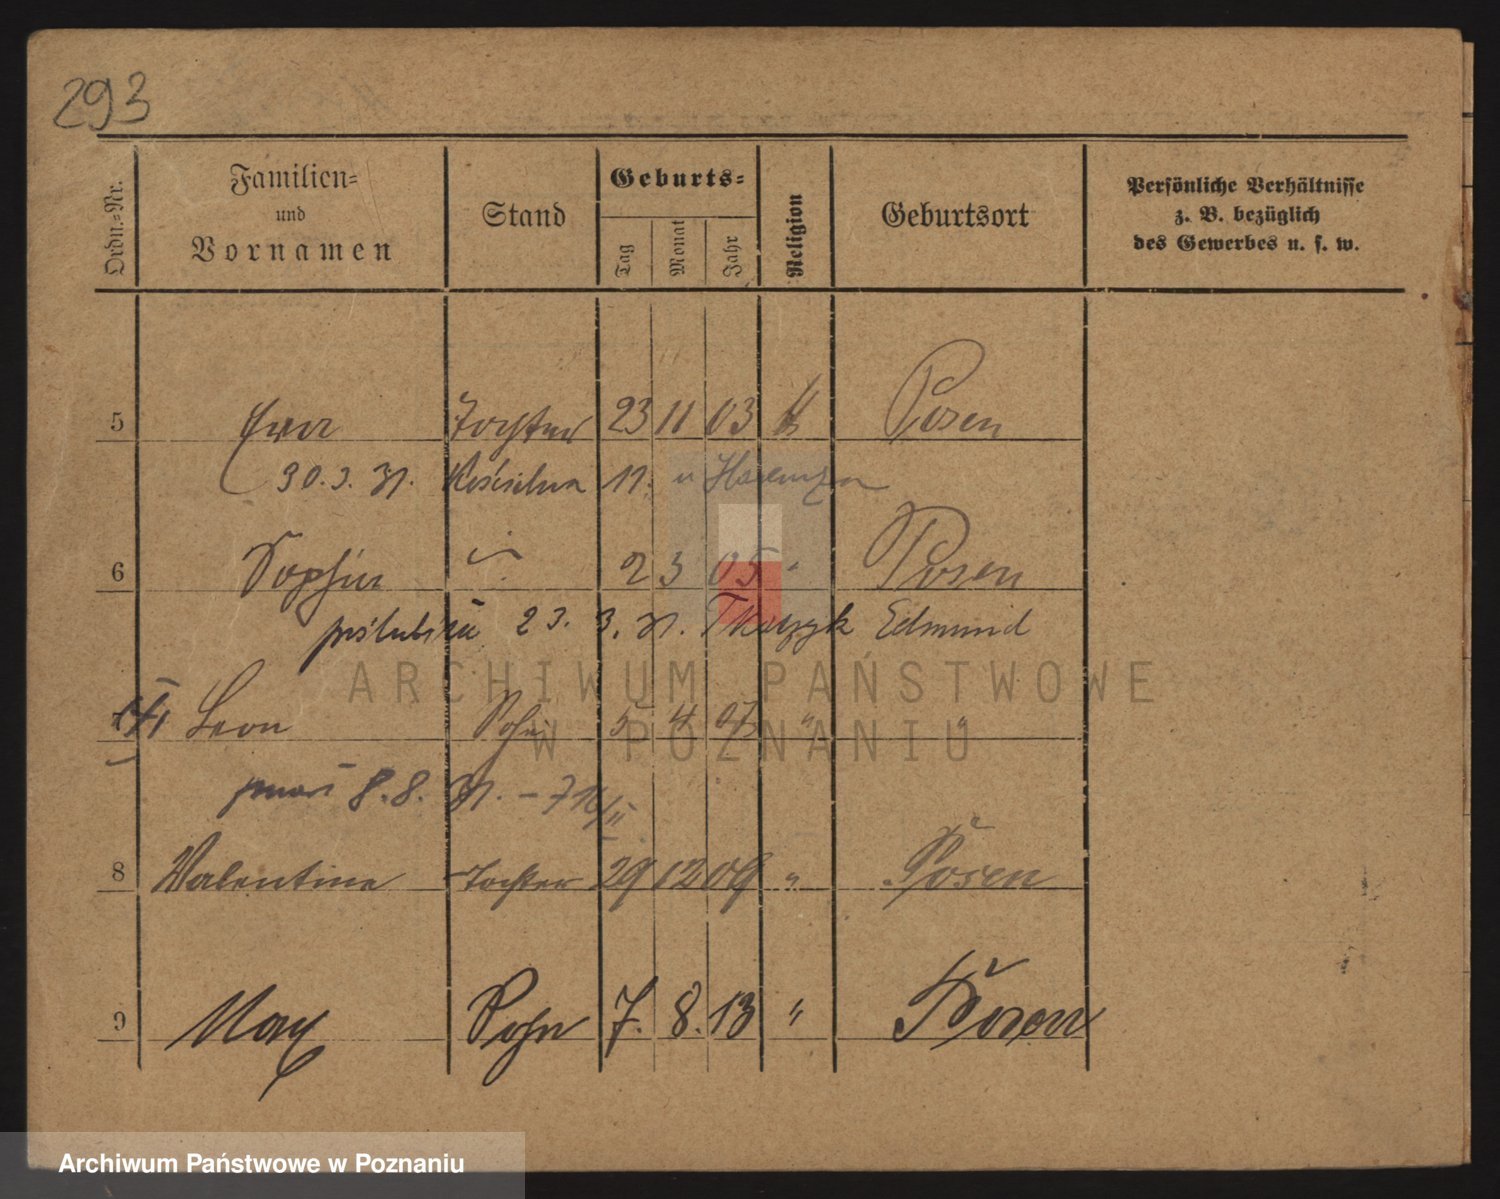 293
Ordn.-Nr.
Familien-
und
Vornamen
Stand
Geburts-
Tag
Monat
Jahr
Religion
Geburtsort
Persönliche Verhältnisse
z. B. bezüglich
des Gewerbes u. s. w.
5 Ewa Tochter 23 11 03 k Posen
30. 3. 31. Kościelna 11.
6 Sophia 2 3 05 " Posen
poślubiła 23. 3. 31. Tkaczyk Edmund
Leon Sohn 5 4 07 " "
zmarł 8. 8.
8 Valentine Tochter 29 12 09 " Posen
9 Max Sohn 7. 8. 13 " Posen
ARCHIWUM PAŃSTWOWE
W POZNANIU
Archiwum Państwowe w Poznaniu